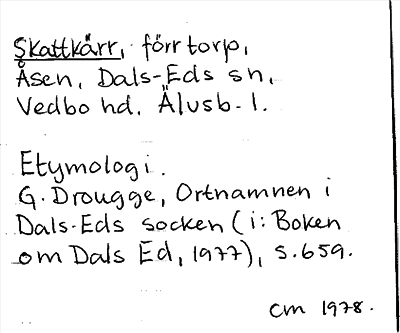 Skattkärr, förr torp,
Åsen, Dals-Eds sn,
Vedbo hd, Älvsb. l.
Etymologi.
G. Drougge, Ortnamnen i
Dals-Eds socken (i: Boken
om Dals Ed, 1977), s. 659.
CM 1978.